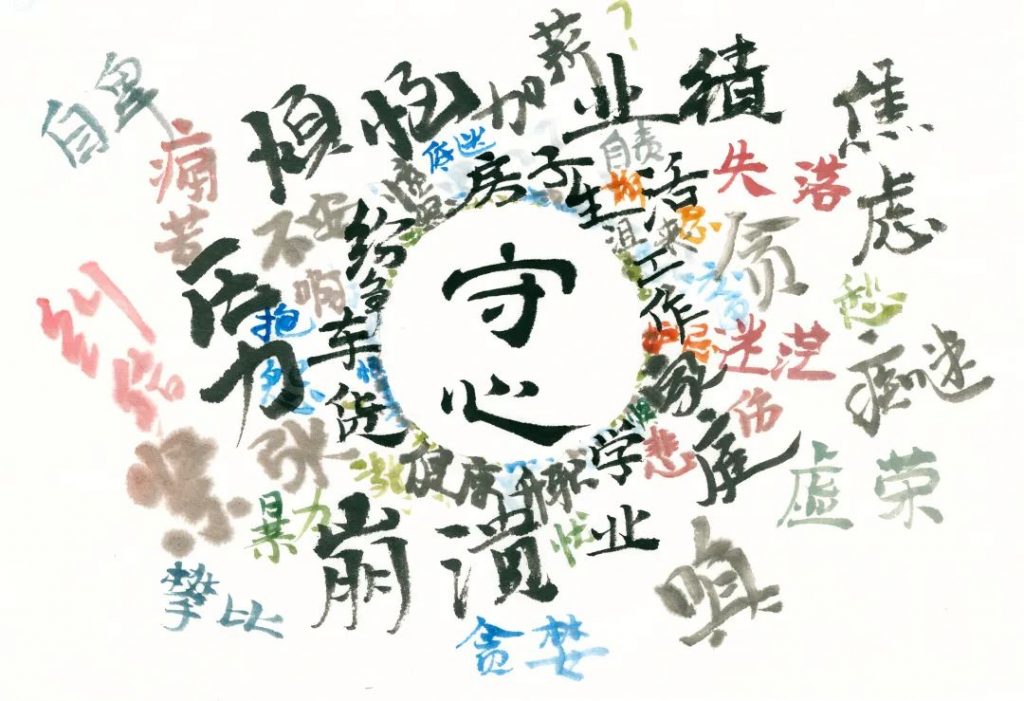 守心
自卑
烦恼
加薪?
业绩
焦虑
痛苦
不安
低迷
房子
自责
生活
失落
压力
纷争
沮丧
工作
贪
愁
抱怨
车贷
家庭
迷茫
痴迷
纠结
紧张
健康
升职
学业
悲伤
虚荣
暴力
崩溃
忧
嗔
攀比
贪婪